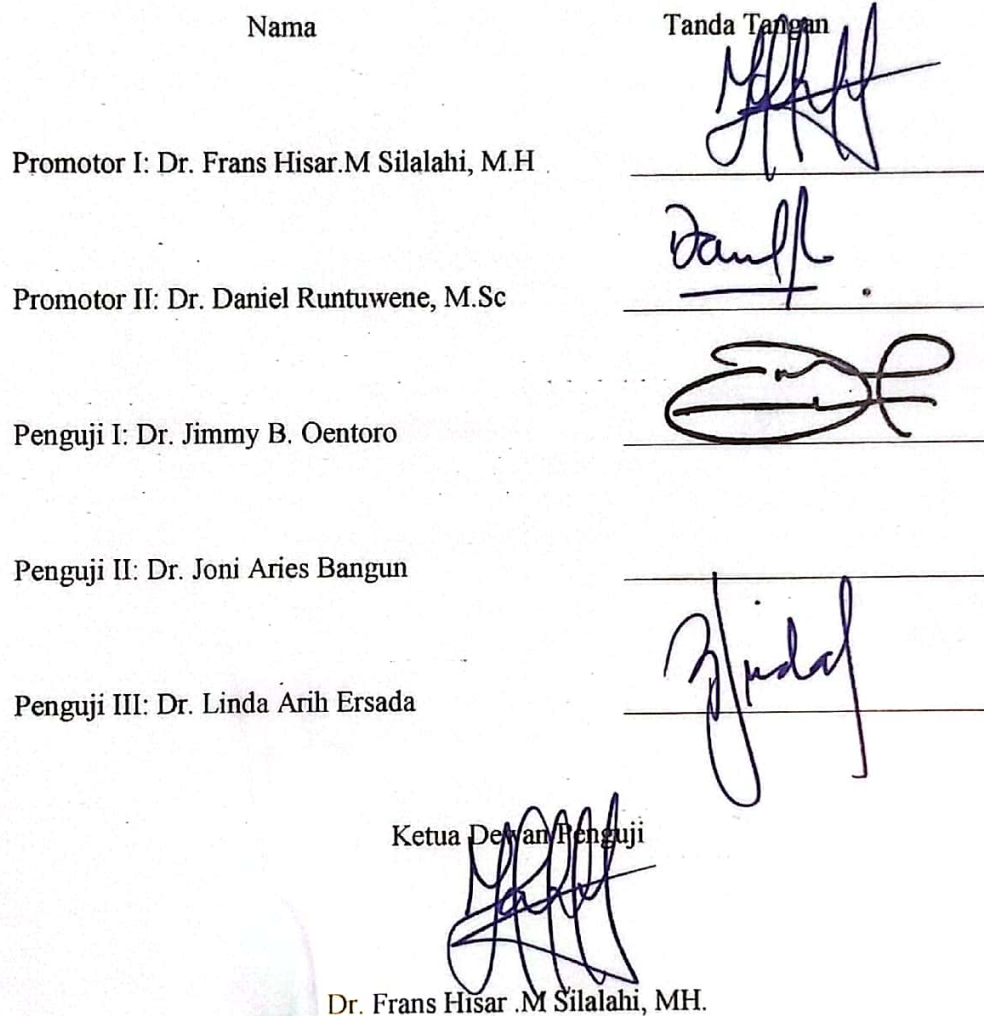 Nama Tanda Tangan
Promotor I: Dr. Frans Hisar.M Silalahi, M.H
Promotor II: Dr. Daniel Runtuwene, M.Sc
Penguji I: Dr. Jimmy B. Oentoro
Penguji II: Dr. Joni Aries Bangun
Penguji III: Dr. Linda Arih Ersada
Ketua Dewan Penguji
Dr. Frans Hisar .M Silalahi, MH.